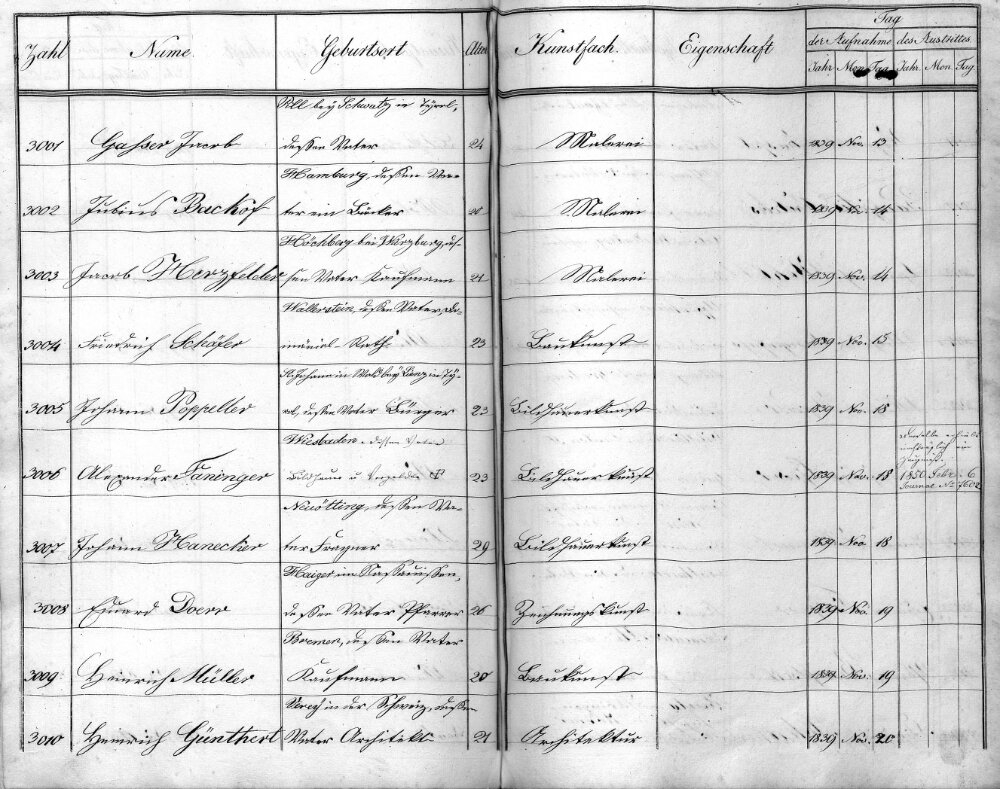 Zahl Name. Geburtsort Alter Kunstfach. Eigenschaft Tag
der Aufnahme des Austrittes.
Jahr Mon Tag Jahr. Mon. Tag.
bey Schwatz in Tÿrol,
3001 Gasser Jacob dessen Vater 24 Malerei 1839 Nov. 13
Hamburg, dessen Va-
3002 Julius Backof ter ein Bäcker Malerei 1839 14
Höchberg bei Würzburg, des
3003 Jacob Herzfelder sen Vater Kaufmann 21 Malerei 1839 Nov. 14
Wallerstein, dessen Vater, Do-
3004 Friedrich Schäfer mänial-Rath. 23 Baukunst 1839 Nov. 15
St. Johann in Wald bey Lienz in Tÿ-
3005 Johann Poppeller rol, dessen Vater Bürger 23 Bildhauerkunst 1839 Nov. 18
Wiesbaden, dessen Vater
3006 Alexander Faninger Bildhauer u. Vergolder 23 Bildhauerkunst 1839 Nov. 18 1850 Febr. 6
Journal No. 7602
Neuötting, dessen Va-
3007 Johann Hanecker ter Fragner 29 Bildhauerkunst 1839 Nov 18
Haiger im Nassauischen,
3008 Eduard Doerr dessen Vater Pfarrer 26 Zeichnungskunst 1839 Nov. 19
Bremen, dessen Vater
3009 Heinrich Müller Kaufmann 20 Baukunst 1839 Nov. 19
in der Schweiz, dessen
3010 Heinrich Günthert Vater Architekt 21 Architektur 1839 Nov. 20